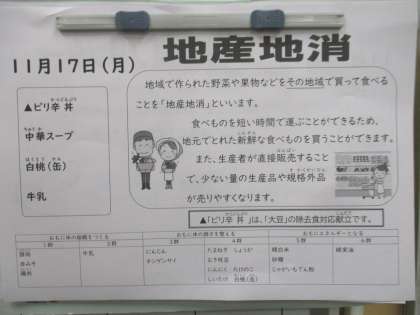 地産地消
11月17日(月)
▲ピリ辛丼
中華スープ
白桃(缶)
牛乳
地域で作られた野菜や果物などをその地域で買って食べる
ことを「地産地消」といいます。
食べものを短い時間で運ぶことができるため、
地元でとれた新鮮な食べものを買うことができます。
また、生産者が直接販売すること
で、少ない量の生産品や規格外品
が売りやすくなります。
▲「ピリ辛丼」は、「大豆」の除去食対応献立です。
おもに体の組織をつくる おもに体の調子を整える おもにエネルギーとなる
1群 2群 3群 4群 5群 6群
豚肉 牛乳 にんじん たまねぎ しょうが 精白米
赤みそ チンゲンサイ 砂糖
鶏肉 にんにく たけのこ じゃがいもでん粉
しいたけ 白桃(缶)